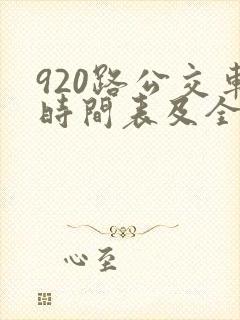 920路公交車
時間表及全
心至